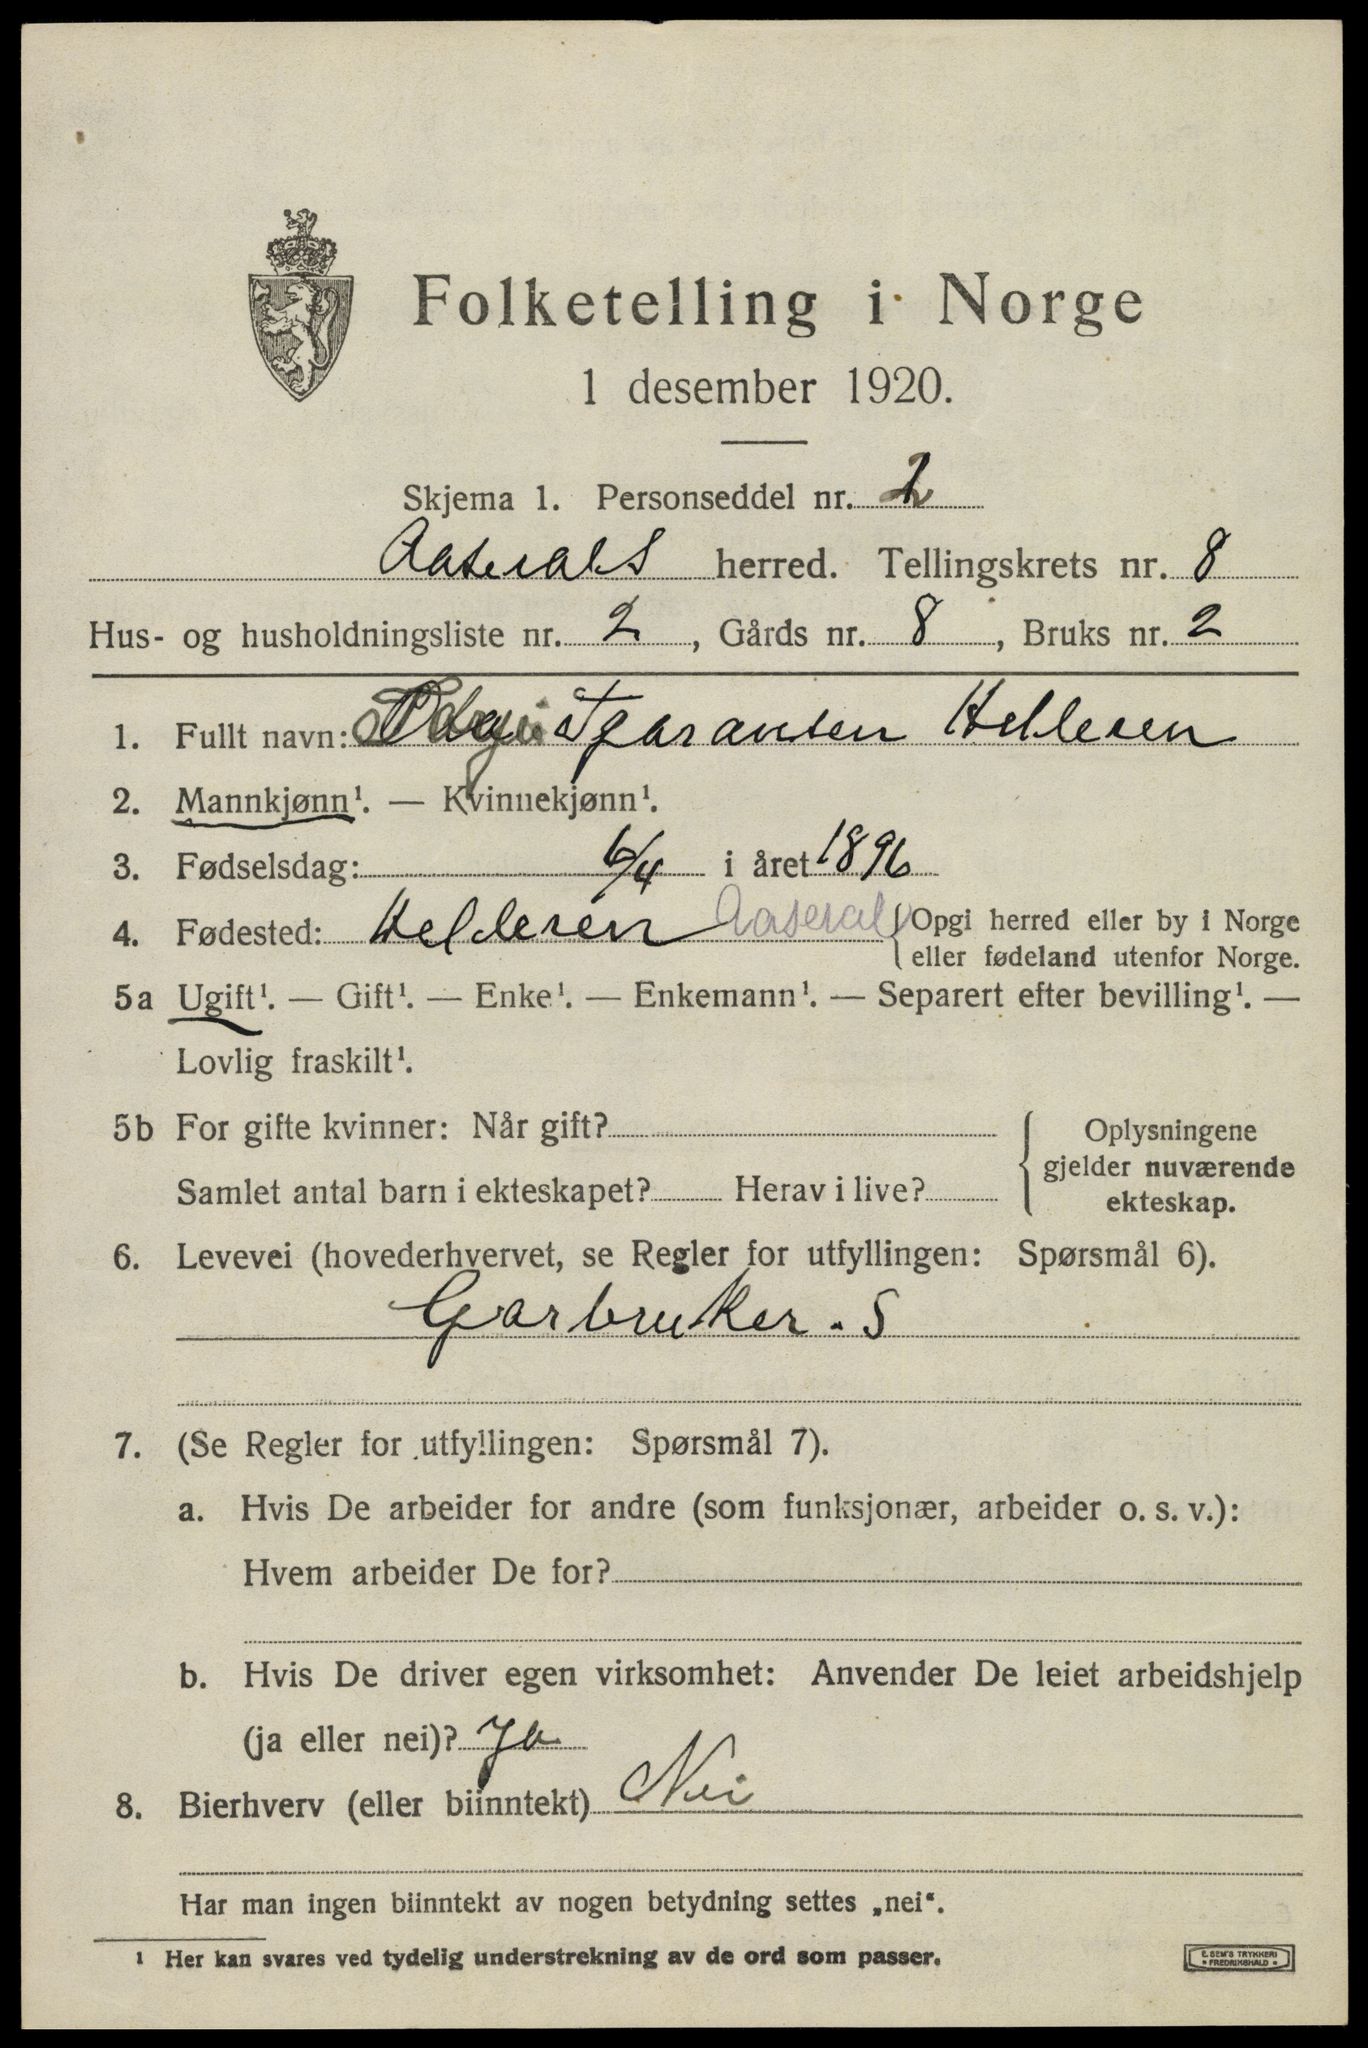 Folketelling i Norge
1 desember 1920.
Skjema 1. Personseddel nr.
Aaserals herred. Tellingskrets nr. 8
Hus- og husholdningsliste nr. 2, Gårds nr. 8, Bruks nr. 2
1. Fullt navn: Helleren
2. Mannkjønn¹. — Kvinnekjønn¹.
3. Fødselsdag: 6/4 i året 1896
4. Fødested: Helleren Aaseral {Opgi herred eller by i Norge
eller fødeland utenfor Norge.
5a Ugift¹. — Gift¹. — Enke¹. — Enkemann¹. — Separert efter bevilling¹. —
Lovlig fraskilt¹.
5b For gifte kvinner: Når gift?
Samlet antal barn i ekteskapet? Herav i live?
Oplysningene
gjelder nuværende
ekteskap.
6. Levevei (hovederhvervet, se Regler for utfyllingen: Spørsmål 6).
Garbruker. S
7. (Se Regler for utfyllingen: Spørsmål 7).
a. Hvis De arbeider for andre (som funksjonær, arbeider o. s. v.):
Hvem arbeider De for?
b. Hvis De driver egen virksomhet: Anvender De leiet arbeidshjelp
(ja eller nei)? Ja
8. Bierhverv (eller biinntekt) Nei
Har man ingen biinntekt av nogen betydning settes „nei“.
¹ Her kan svares ved tydelig understrekning av de ord som passer.
E. SEM'S TRYKKERI
• FREDRIKSHALD •